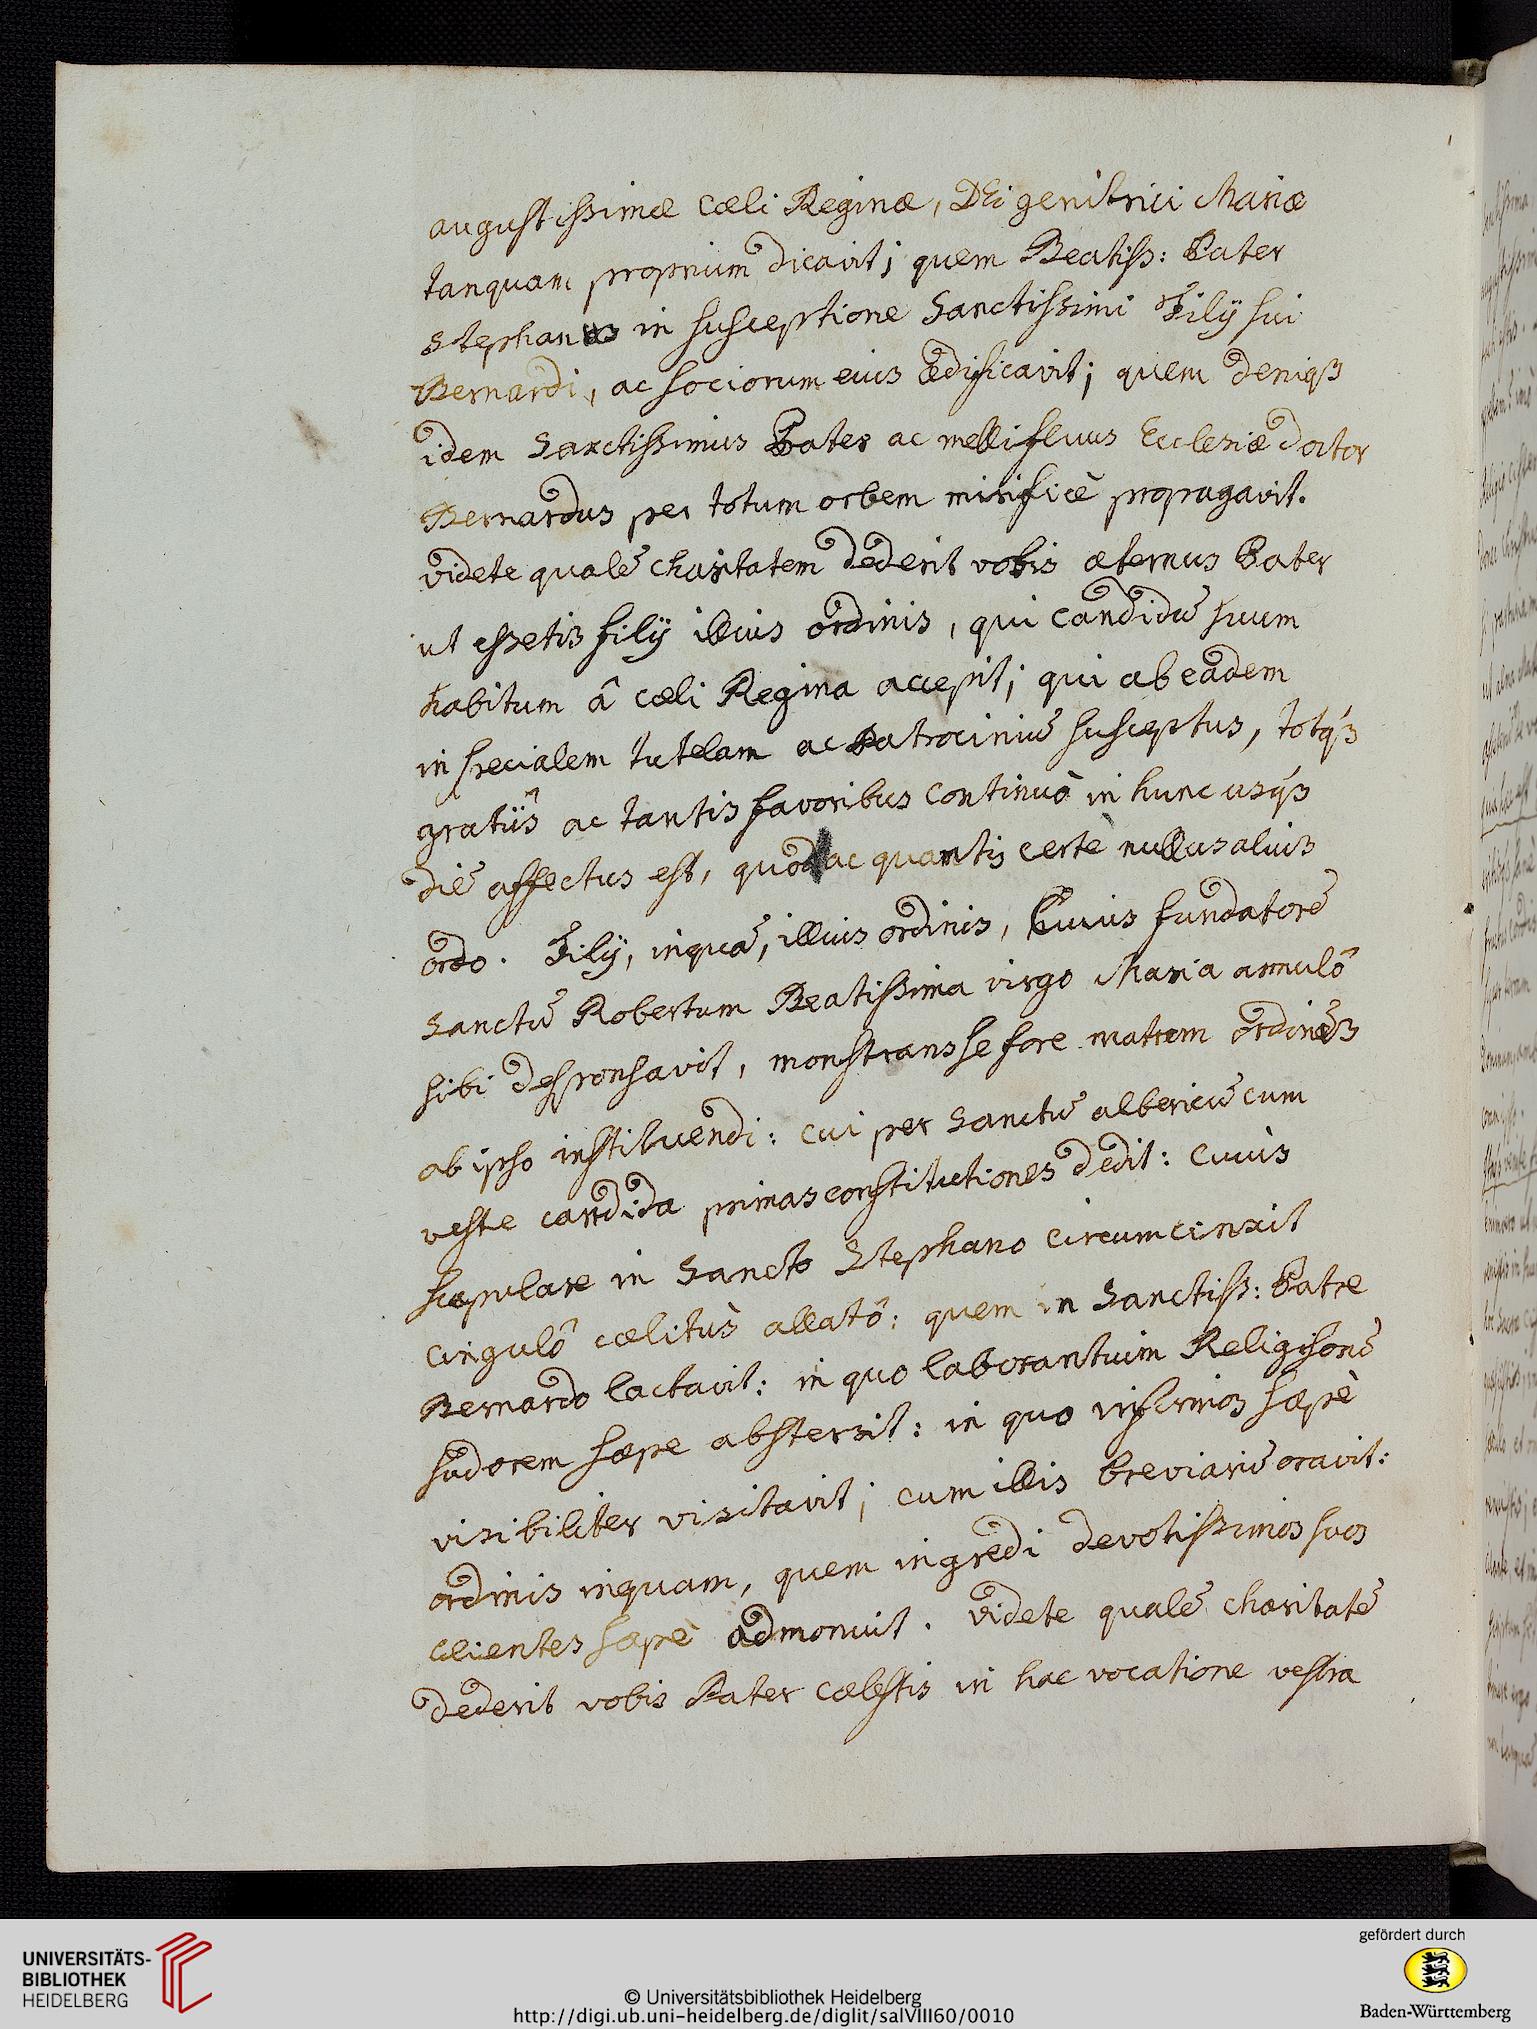 augustissimæ cæli Reginæ, DEi genitrici Mariæ
tanquam proprium dicavit; quem Beatiss: Pater
Stephanus in susceptione Sanctissimi Filÿ sui
Bernardi, ac sociorum eius ædificavit; quem deniqȝ
idem Sanctissimus Pater ac mellifluus Ecclesiæ doctor
Bernardus per totum orbem mirificè propagavit.
videte qualē charitatem dederit vobis æternus Pater
ut essetis filÿ illius ordinis, qui candidū suum
habitum â cæli Regina accepit; qui ab eadem
in specialem tutelam ac Patrociniū susceptus, totqȝ
gratiîs ac tantis favoribus continuò in hunc usqȝ
diē affectus est, quod ac quantis certè nullus alius
ordo. Filÿ, inquā, illius ordinis, Cuius fundatorē
Sanctū Robertum Beatissima virgo Maria annulô
sibi desponsavit, monstrans se fore matrem ordinis
ab ipso instituendi: cui per Sanctū albericū cum
veste candida primas constitutiones dedit: cuius
scapulare in Sancto Stephano circumcinxit
cingulô cælitùs allatô: quem in Sanctiss: Patre
Bernardo lactavit: in quo laborantium Religisonū
sudorem sæpe abstersit: in quo infirmos sæpè
visibiliter visitavit; cum illis breviariū oravit:
ordinis inquam, quem ingredi devotissimos suos
clientes sæpè admonuit. videte qualē charitatē
dederit vobis Pater cælestis in hac vocatione vestra
UNIVERSITÄTS-
BIBLIOTHEK
HEIDELBERG
© Universitätsbibliothek Heidelberg
http://digi.ub.uni-heidelberg.de/diglit/salVIII60/0010
gefördert durch
Baden-Württemberg